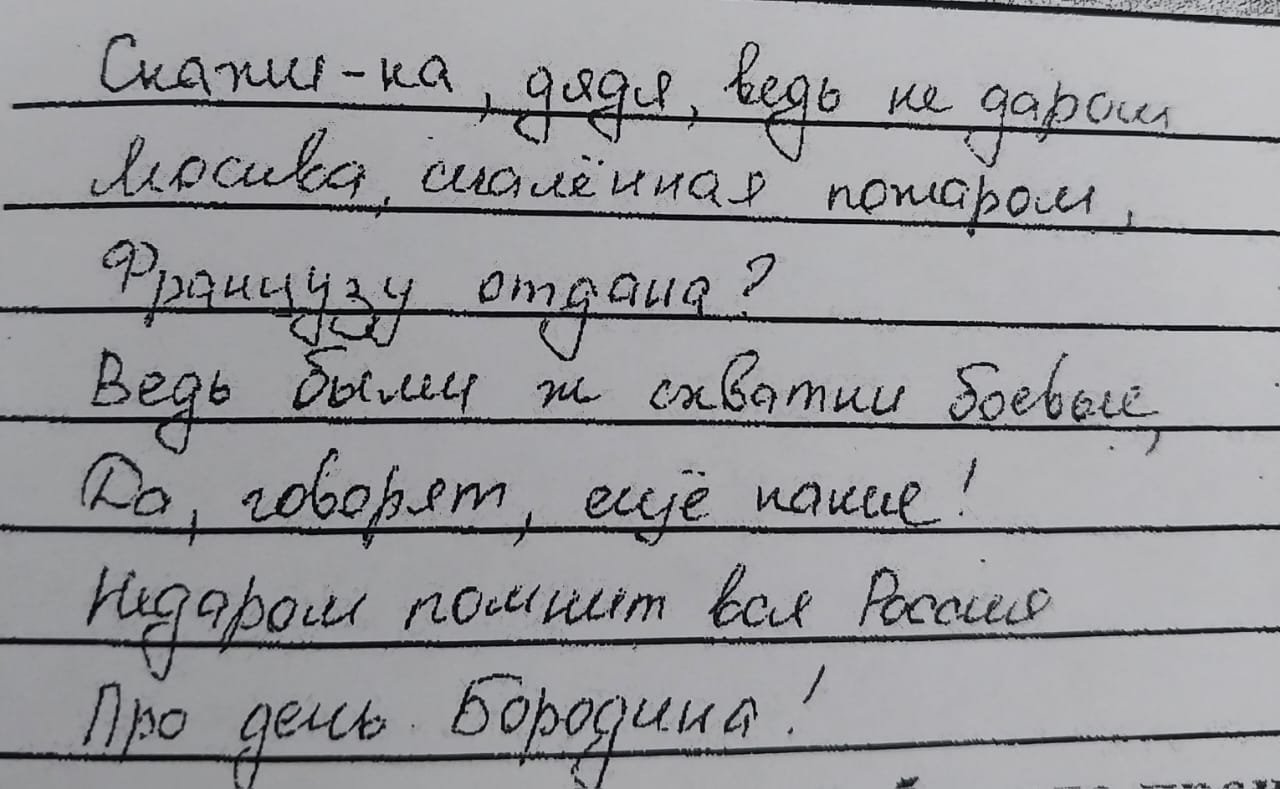 Скажи-ка, дядя, ведь не даром
Москва, спалённая пожаром,
Французу отдана?
Ведь были ж схватки боевые,
Да, говорят, ещё какие!
Недаром помнит вся Россия
Про день Бородина!